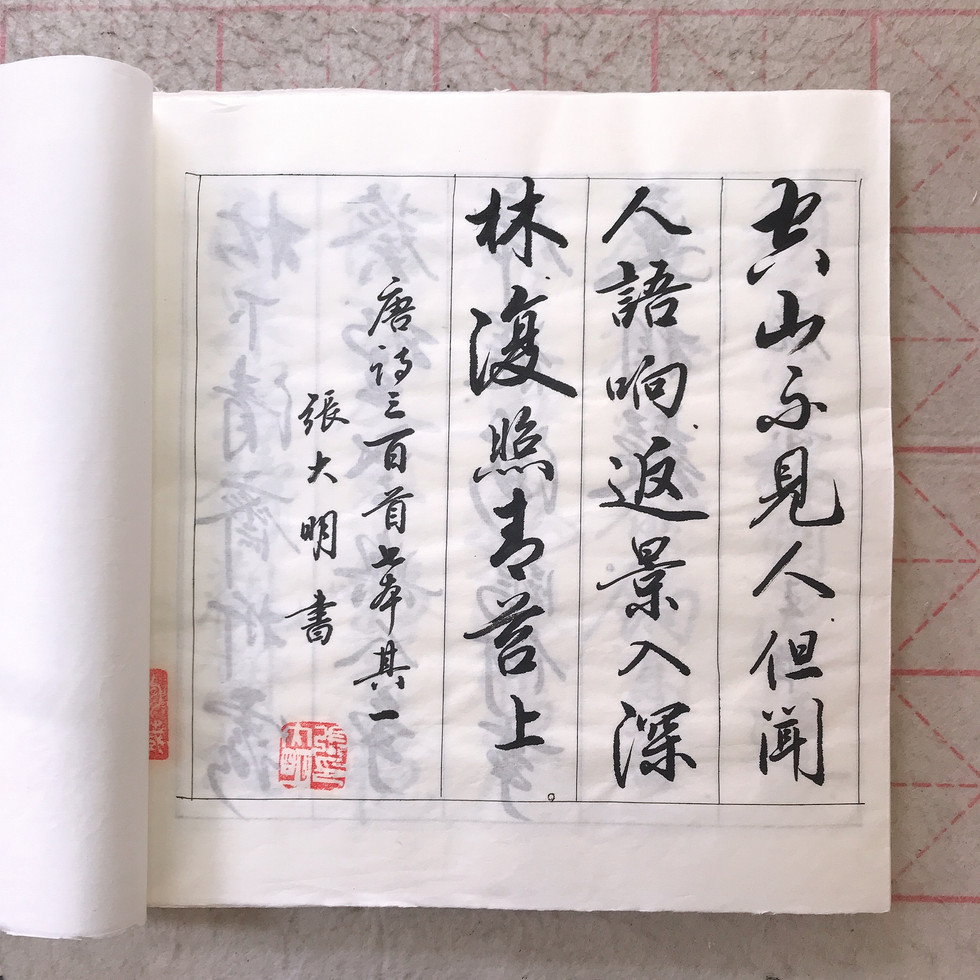 空山不見人但聞
人語响返景入深
林復照青苔上
唐詩三百首七本其一
張大明書
張大明印